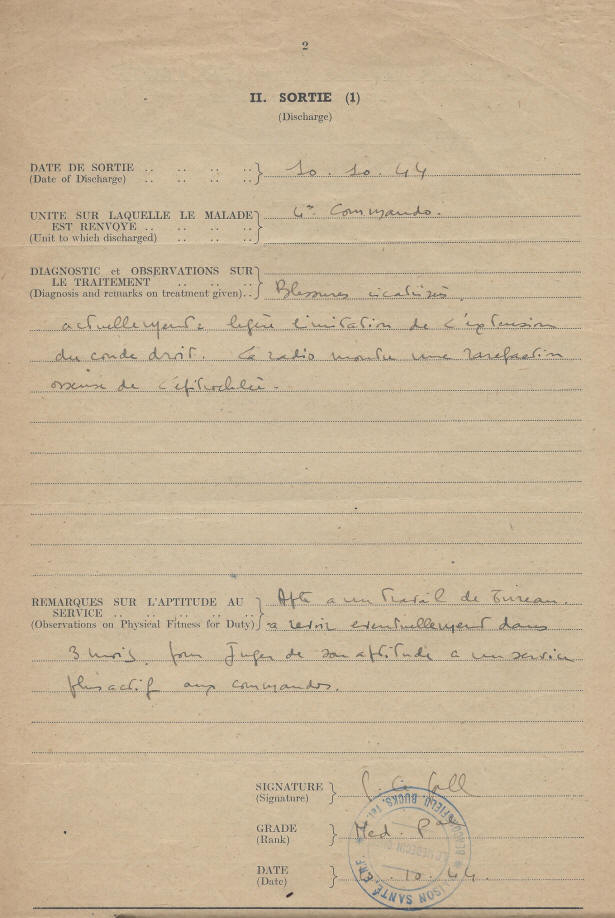 2
II. SORTIE (1)
(Discharge)
DATE DE SORTIE .. .. .. ..} 10. 10. 44
(Date of Discharge) .. .. .. ..
UNITE SUR LAQUELLE LE MALADE} 4e Commando.
EST RENVOYE .. .. .. ..
(Unit to which discharged) .. .. ..
DIAGNOSTIC et OBSERVATIONS SUR
LE TRAITEMENT .. .. ..
(Diagnosis and remarks on treatment given)..} Blessures cicatrisées.
actuellement: legère limitation de l'extension
du coude droit. La radio montre une rarefaction
osseuse de l'épitrochlée.
REMARQUES SUR L'APTITUDE AU} Apte a un travail de bureau.
SERVICE .. .. .. .. ..
(Observations on Physical Fitness for Duty) a revoir eventuellement dans
3 mois pour juger de son aptitude a un service
plus actif aux commandos.
SIGNATURE}
(Signature)
GRADE} Med. Pal
(Rank)
DATE} 10. 44.
(Date)
BEACONSFIELD, BUCKS. Tel.
MAISON SANTÉ
LE MEDECIN